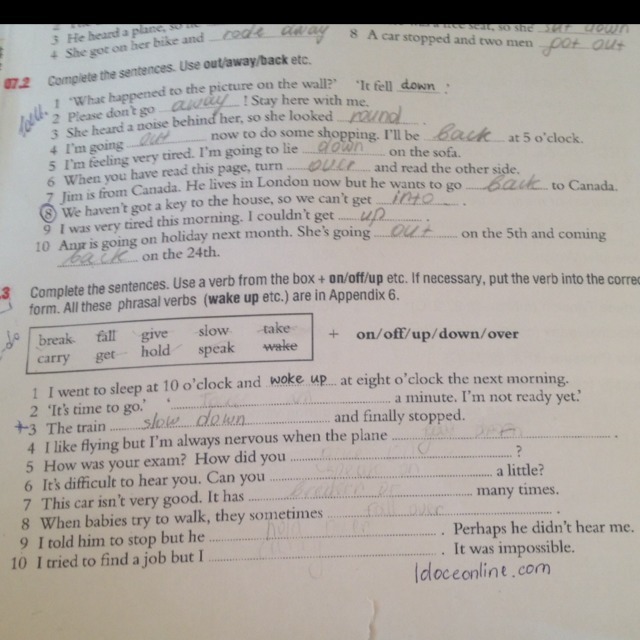 3 He heard a plane, so he
4 She got on her bike and rode away
seat, so she sat down
8 A car stopped and two men got out
07.2 Complete the sentences. Use out/away/back etc.
1 'What happened to the picture on the wall?' 'It fell down .'
2 Please don't go away ! Stay here with me.
3 She heard a noise behind her, so she looked round .
4 I'm going out now to do some shopping. I'll be back at 5 o'clock.
5 I'm feeling very tired. I'm going to lie down on the sofa.
6 When you have read this page, turn over and read the other side.
7 Jim is from Canada. He lives in London now but he wants to go back to Canada.
8 We haven't got a key to the house, so we can't get into .
9 I was very tired this morning. I couldn't get up .
10 Ann is going on holiday next month. She's going out on the 5th and coming
back on the 24th.
.3 Complete the sentences. Use a verb from the box + on/off/up etc. If necessary, put the verb into the correc
form. All these phrasal verbs (wake up etc.) are in Appendix 6.
break fall give slow take
carry get hold speak wake
+ on/off/up/down/over
1 I went to sleep at 10 o'clock and woke up at eight o'clock the next morning.
2 'It's time to go.' ' a minute. I'm not ready yet.'
+3 The train slow down and finally stopped.
4 I like flying but I'm always nervous when the plane .
5 How was your exam? How did you ?
6 It's difficult to hear you. Can you a little?
7 This car isn't very good. It has many times.
8 When babies try to walk, they sometimes fall over .
9 I told him to stop but he . Perhaps he didn't hear me.
10 I tried to find a job but I . It was impossible.
1doceonline.com